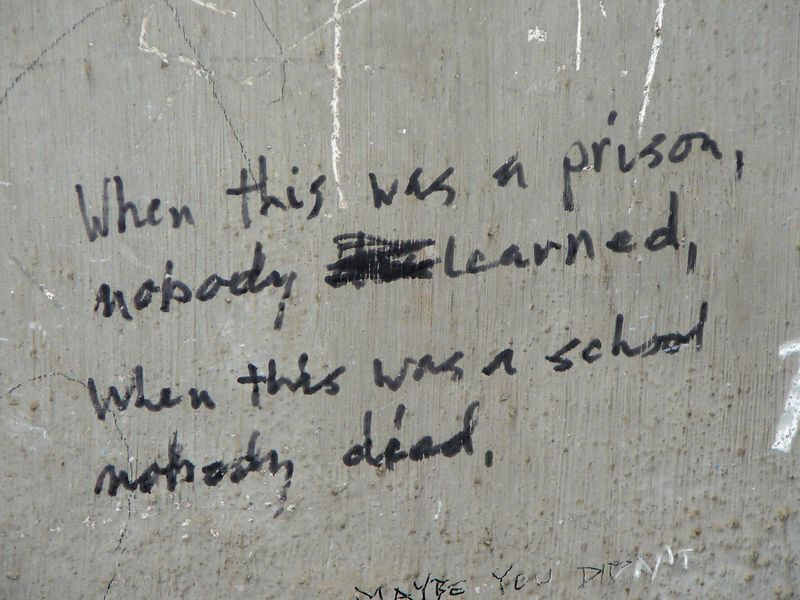 When this was a prison,
nobody learned,
When this was a school
nobody dead,
MAYBE YOU DIDN'T